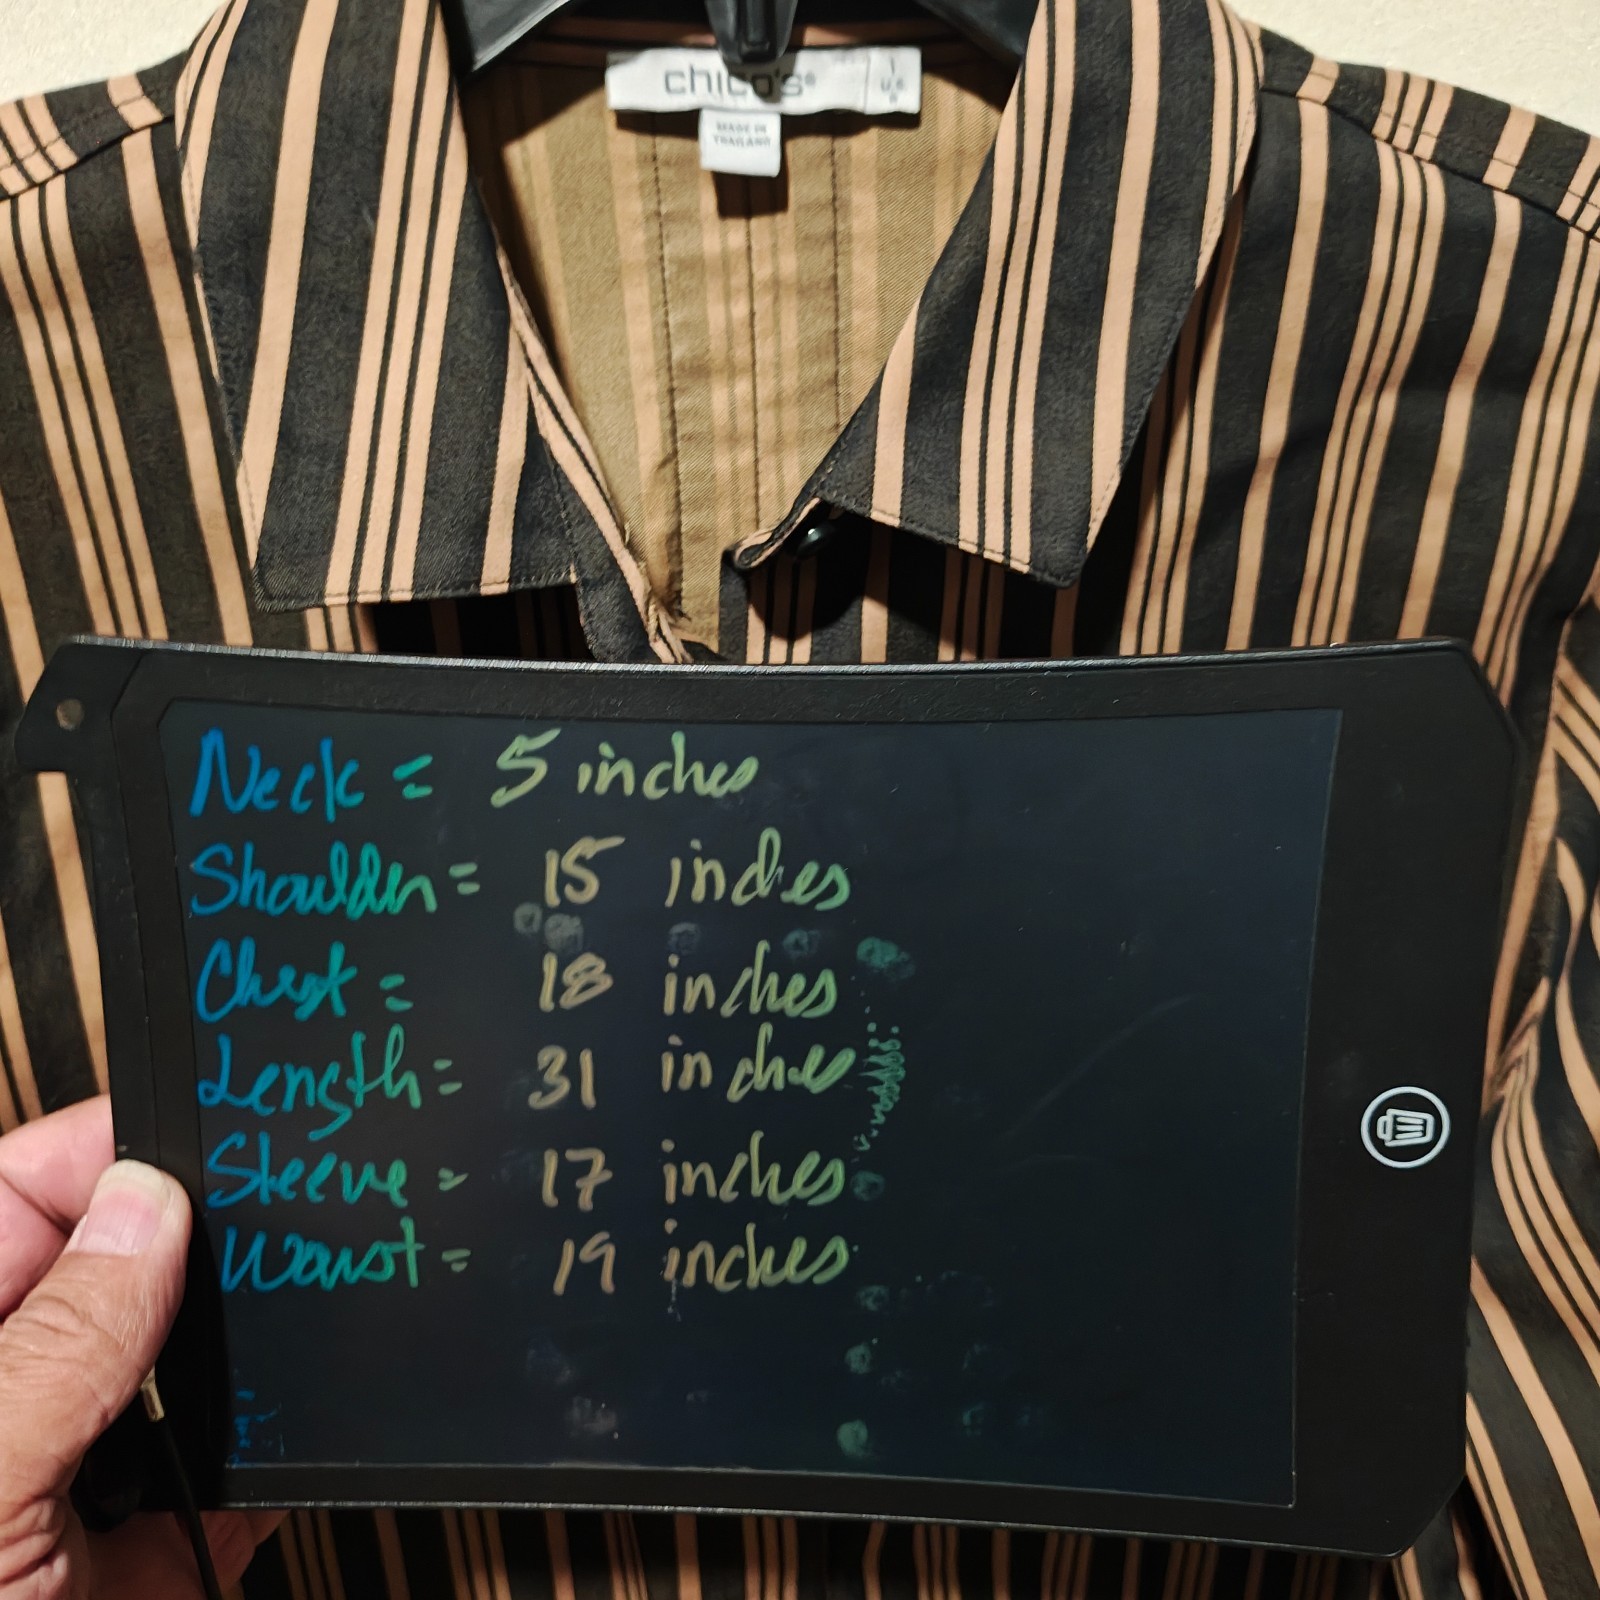 chico's®
1
U.S.
8
MADE IN
THAILAND
Neck = 5 inches
Shoulder = 15 inches
Chest = 18 inches
Length = 31 inches
Sleeve = 17 inches
Waist = 19 inches